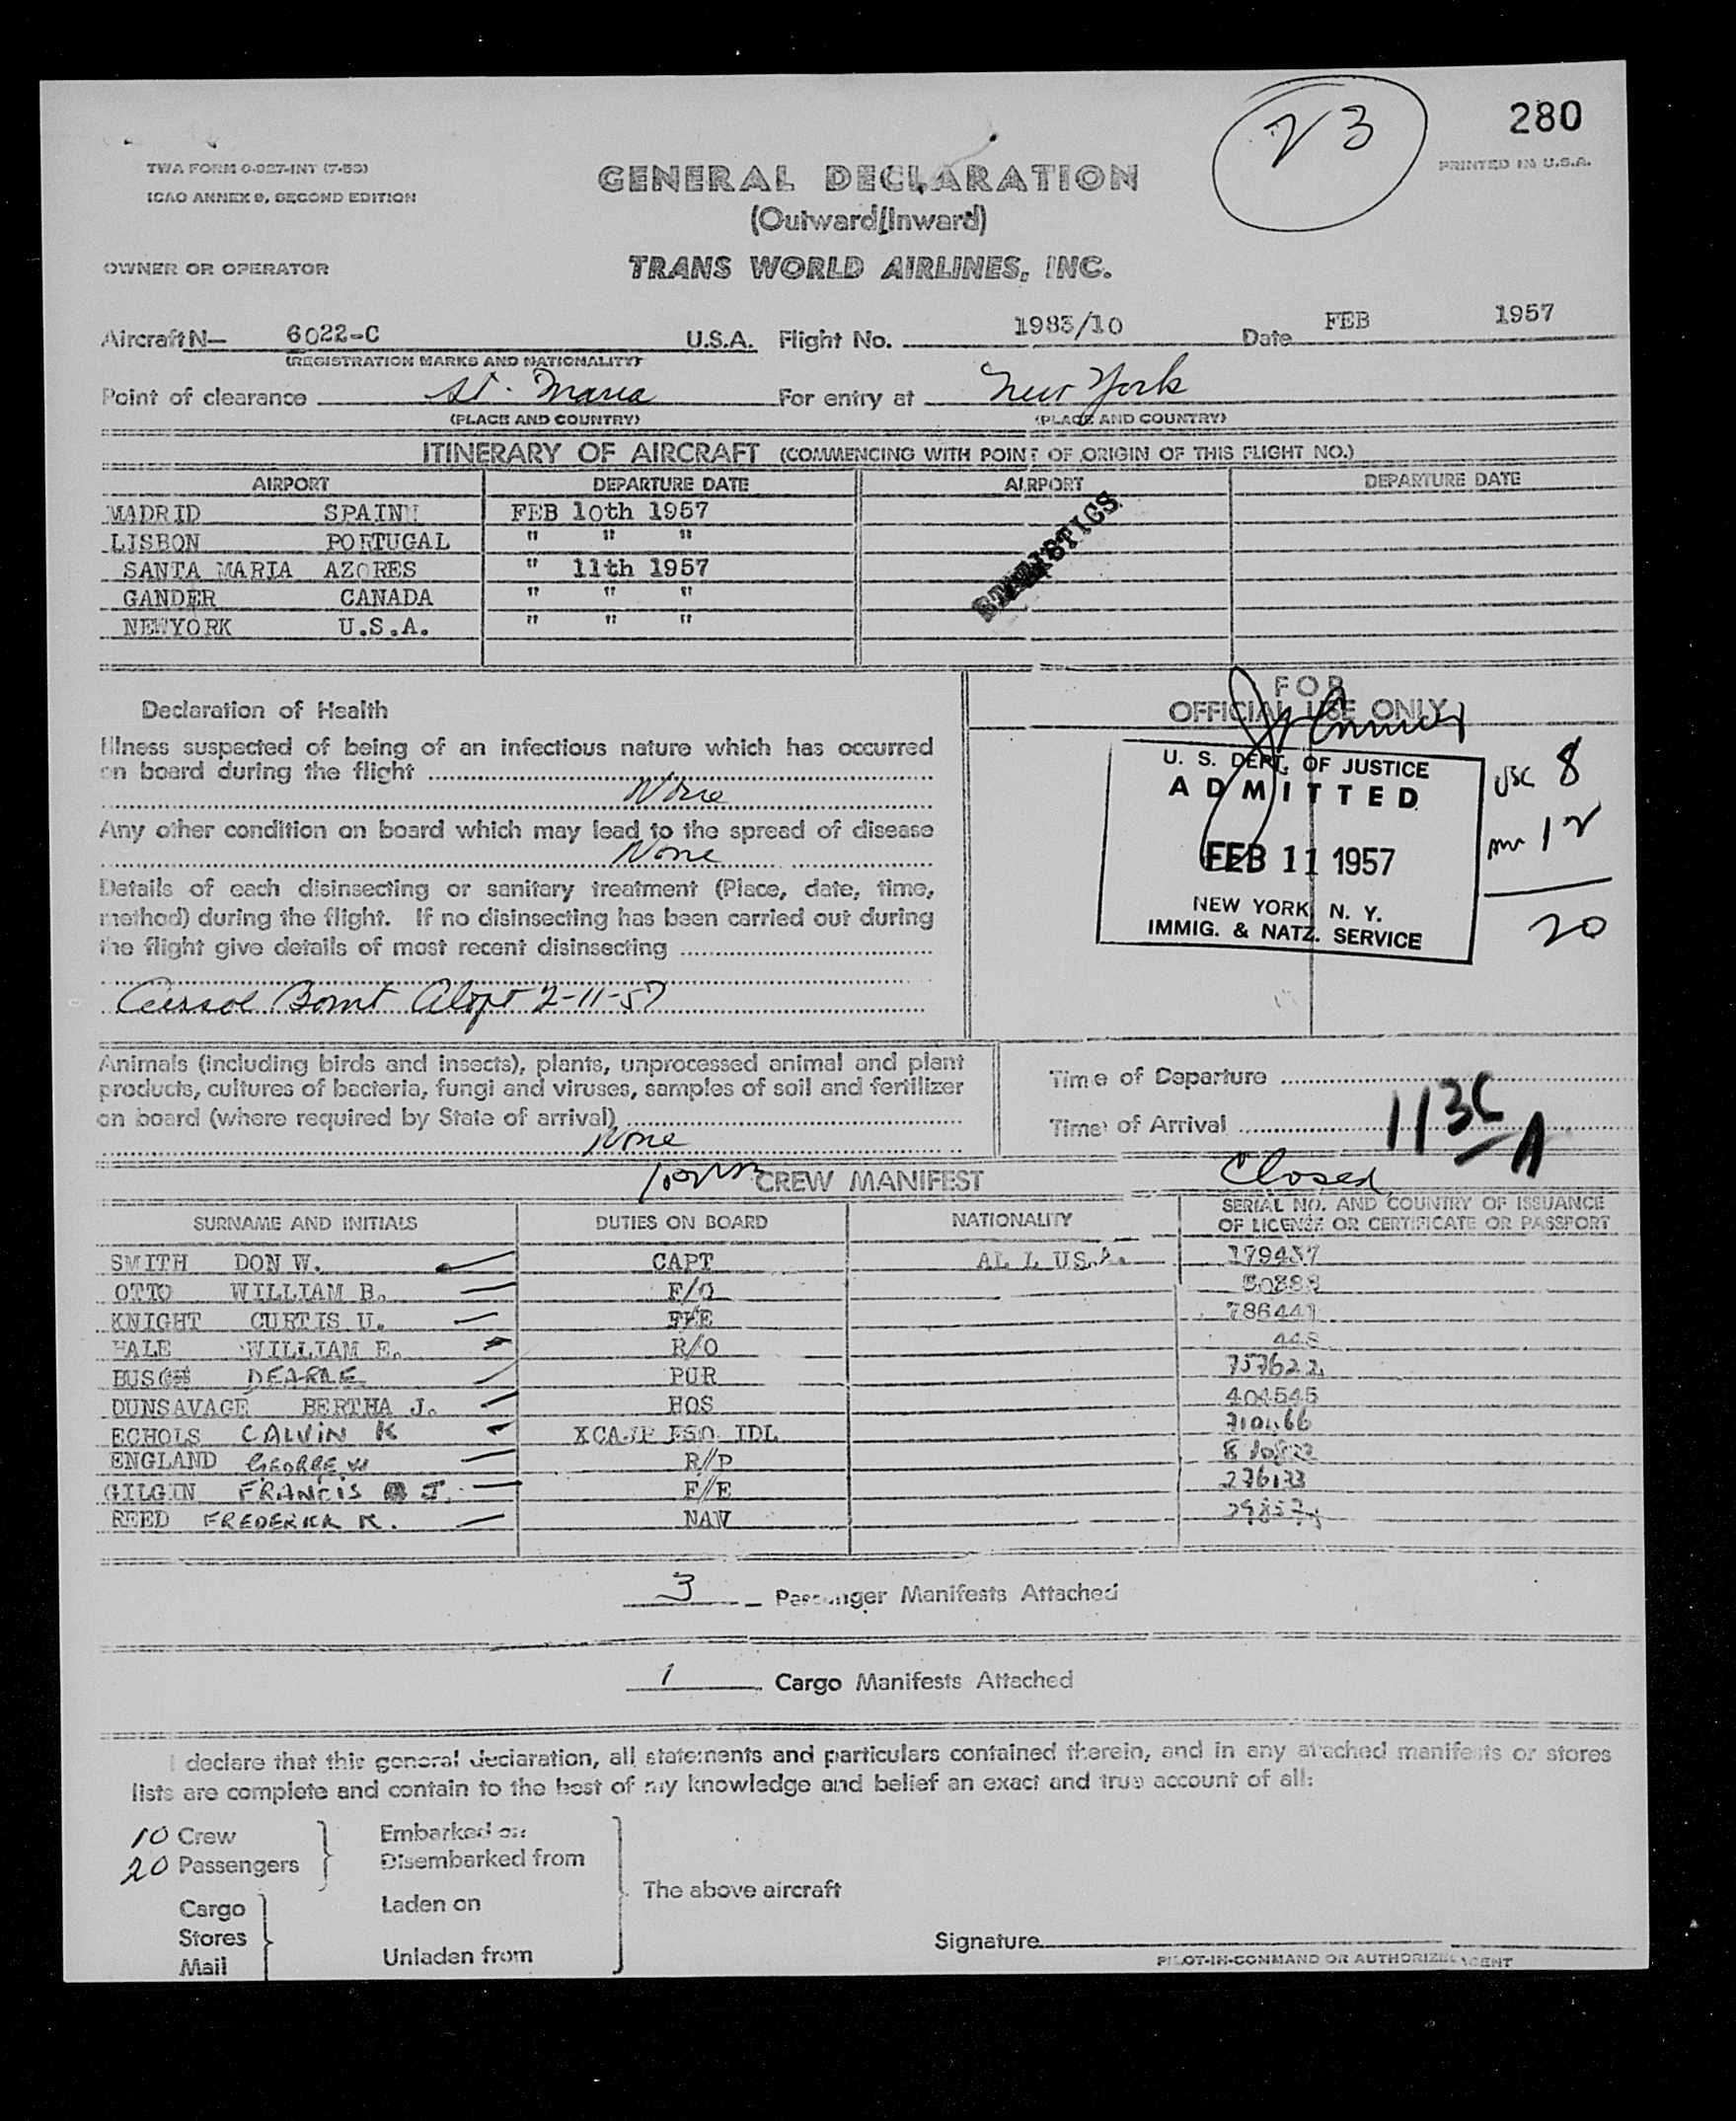 23
280
TWA FORM 0-027-INT (7-53)
ICAO ANNEX 9, SECOND EDITION
PRINTED IN U.S.A.
GENERAL DECLARATION
(Outward/Inward)
OWNER OR OPERATOR
TRANS WORLD AIRLINES, INC.
Aircraft N— 6022-C U.S.A. Flight No. 1983/10 Date FEB 1957
(REGISTRATION MARKS AND NATIONALITY)
Point of clearance St. Maria For entry at New York
(PLACE AND COUNTRY) (PLACE AND COUNTRY)
ITINERARY OF AIRCRAFT (COMMENCING WITH POINT OF ORIGIN OF THIS FLIGHT NO.)
AIRPORT DEPARTURE DATE AIRPORT DEPARTURE DATE
MADRID SPAIN FEB 10th 1957
LISBON PORTUGAL " " "
SANTA MARIA AZORES " 11th 1957
GANDER CANADA " " "
NEWYORK U.S.A. " " "
STATISTICS
Declaration of Health
FOR
OFFICIAL USE ONLY
Illness suspected of being of an infectious nature which has occurred
on board during the flight
None
Any other condition on board which may lead to the spread of disease
None
Details of each disinsecting or sanitary treatment (Place, date, time,
method) during the flight. If no disinsecting has been carried out during
the flight give details of most recent disinsecting
2-11-57
U. S. DEPT. OF JUSTICE
ADMITTED
FEB 11 1957
NEW YORK, N. Y.
IMMIG. & NATZ. SERVICE
USC 8
12
20
Animals (including birds and insects), plants, unprocessed animal and plant
products, cultures of bacteria, fungi and viruses, samples of soil and fertilizer
on board (where required by State of arrival)
None
Time of Departure
Time of Arrival
Closed
CREW MANIFEST
SURNAME AND INITIALS DUTIES ON BOARD NATIONALITY SERIAL NO. AND COUNTRY OF ISSUANCE
OF LICENSE OR CERTIFICATE OR PASSPORT
SMITH DON W. CAPT ALL US.A. 179437
OTTO WILLIAM B. F/O
KNIGHT CURTIS U. F/E 786441
HALE WILLIAM E. R/O 448
BUSCH DEARLE PUR 757622
DUNSAVAGE BERTHA J. HOS 404545
ECHOLS CALVIN K
ENGLAND GEORGE W R/P
GILGIN FRANCIS J. F/E
REED FREDERICK R. NAV
3 Passenger Manifests Attached
1 Cargo Manifests Attached
I declare that this general declaration, all statements and particulars contained therein, and in any attached manifests or stores
lists are complete and contain to the best of my knowledge and belief an exact and true account of all:
10 Crew
20 Passengers
Embarked on
Disembarked from
Cargo
Stores
Mail
Laden on
Unladen from
The above aircraft
Signature
PILOT-IN-COMMAND OR AUTHORIZED AGENT